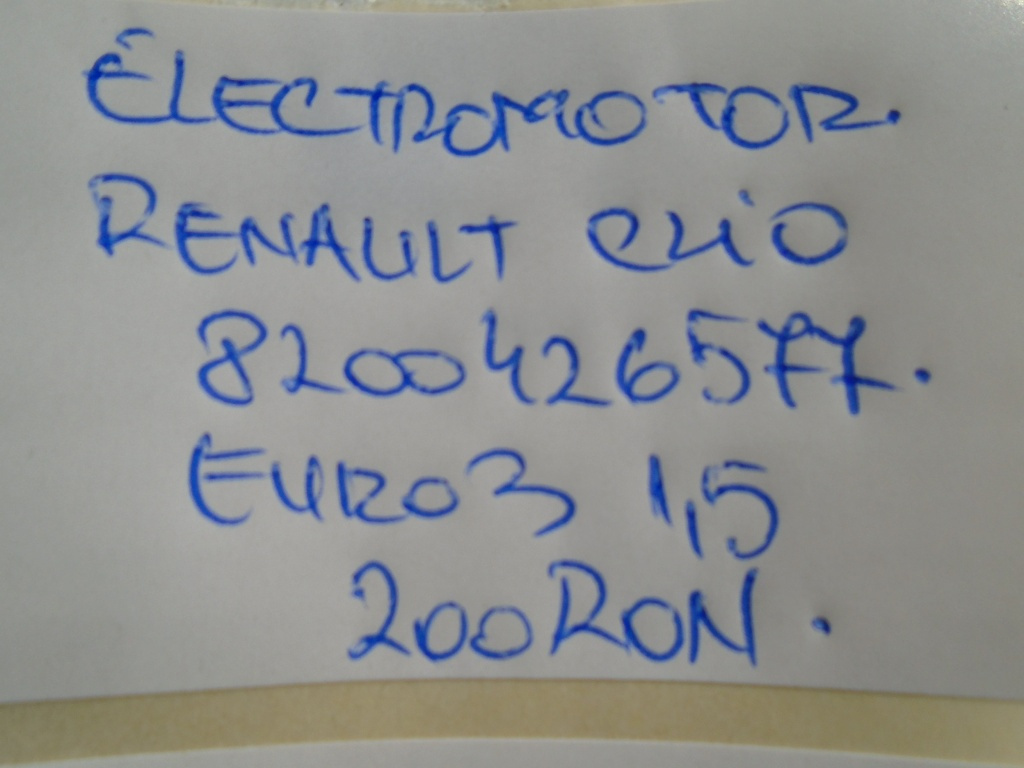 ELECTROMOTOR.
RENAULT CLiO
8200426577.
EURO3 1,5
200RON.